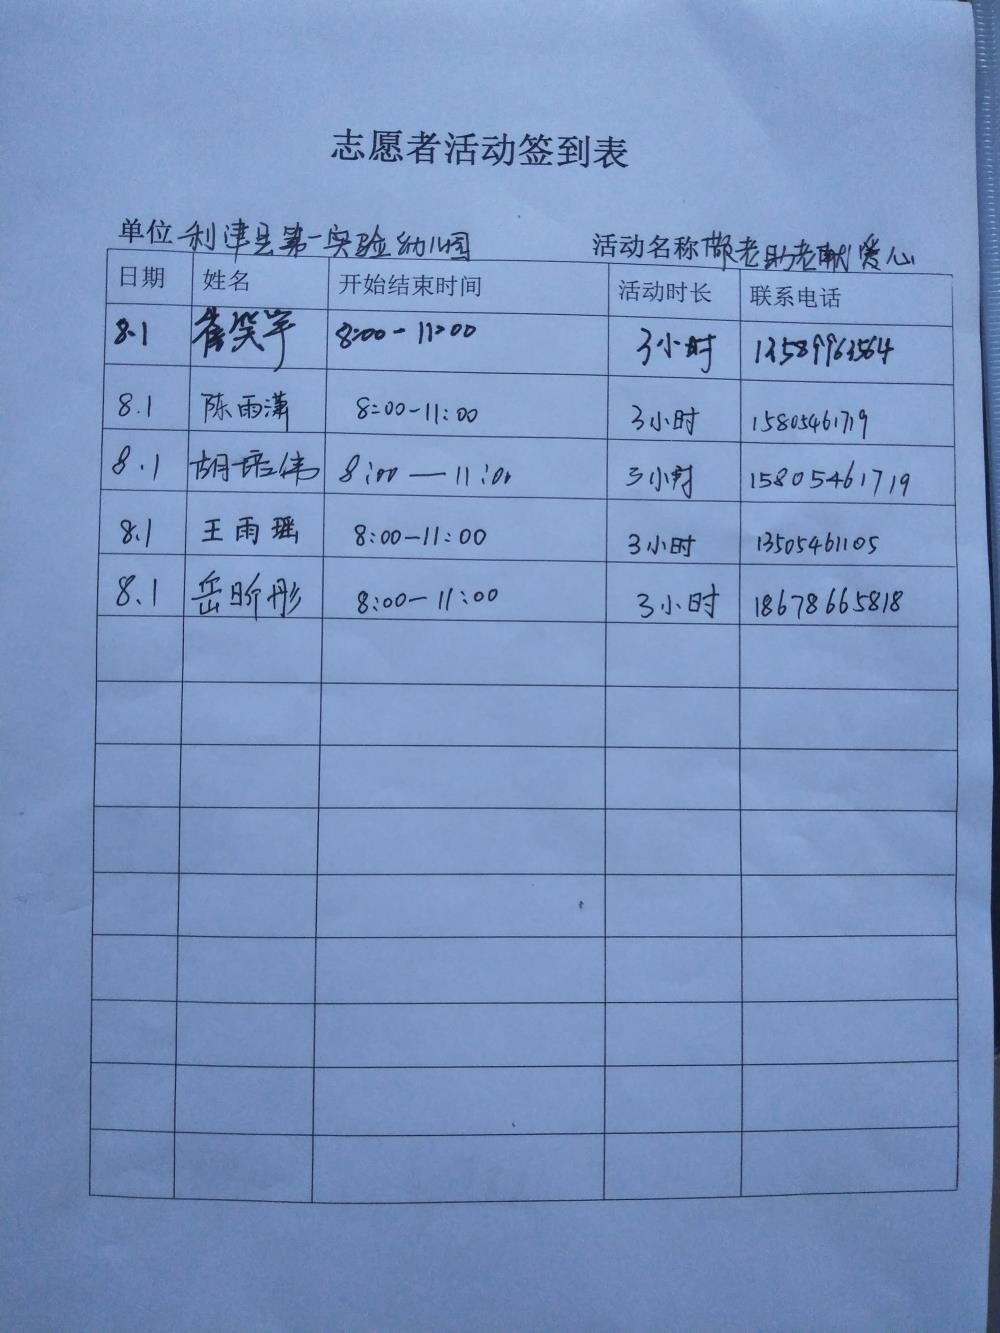 志愿者活动签到表
单位 利津县第一实验幼儿园 活动名称 敬老助老献爱心
日期 姓名 开始结束时间 活动时长 联系电话
8.1 崔笑宇 8:00-11:00 3小时 13589963564
8.1 陈雨潇 8:00-11:00 3小时 15805461719
8.1 胡培伟 8:00—11:00 3小时 15805461719
8.1 王雨瑶 8:00-11:00 3小时 13505461105
8.1 岳昕彤 8:00-11:00 3小时 18678665818